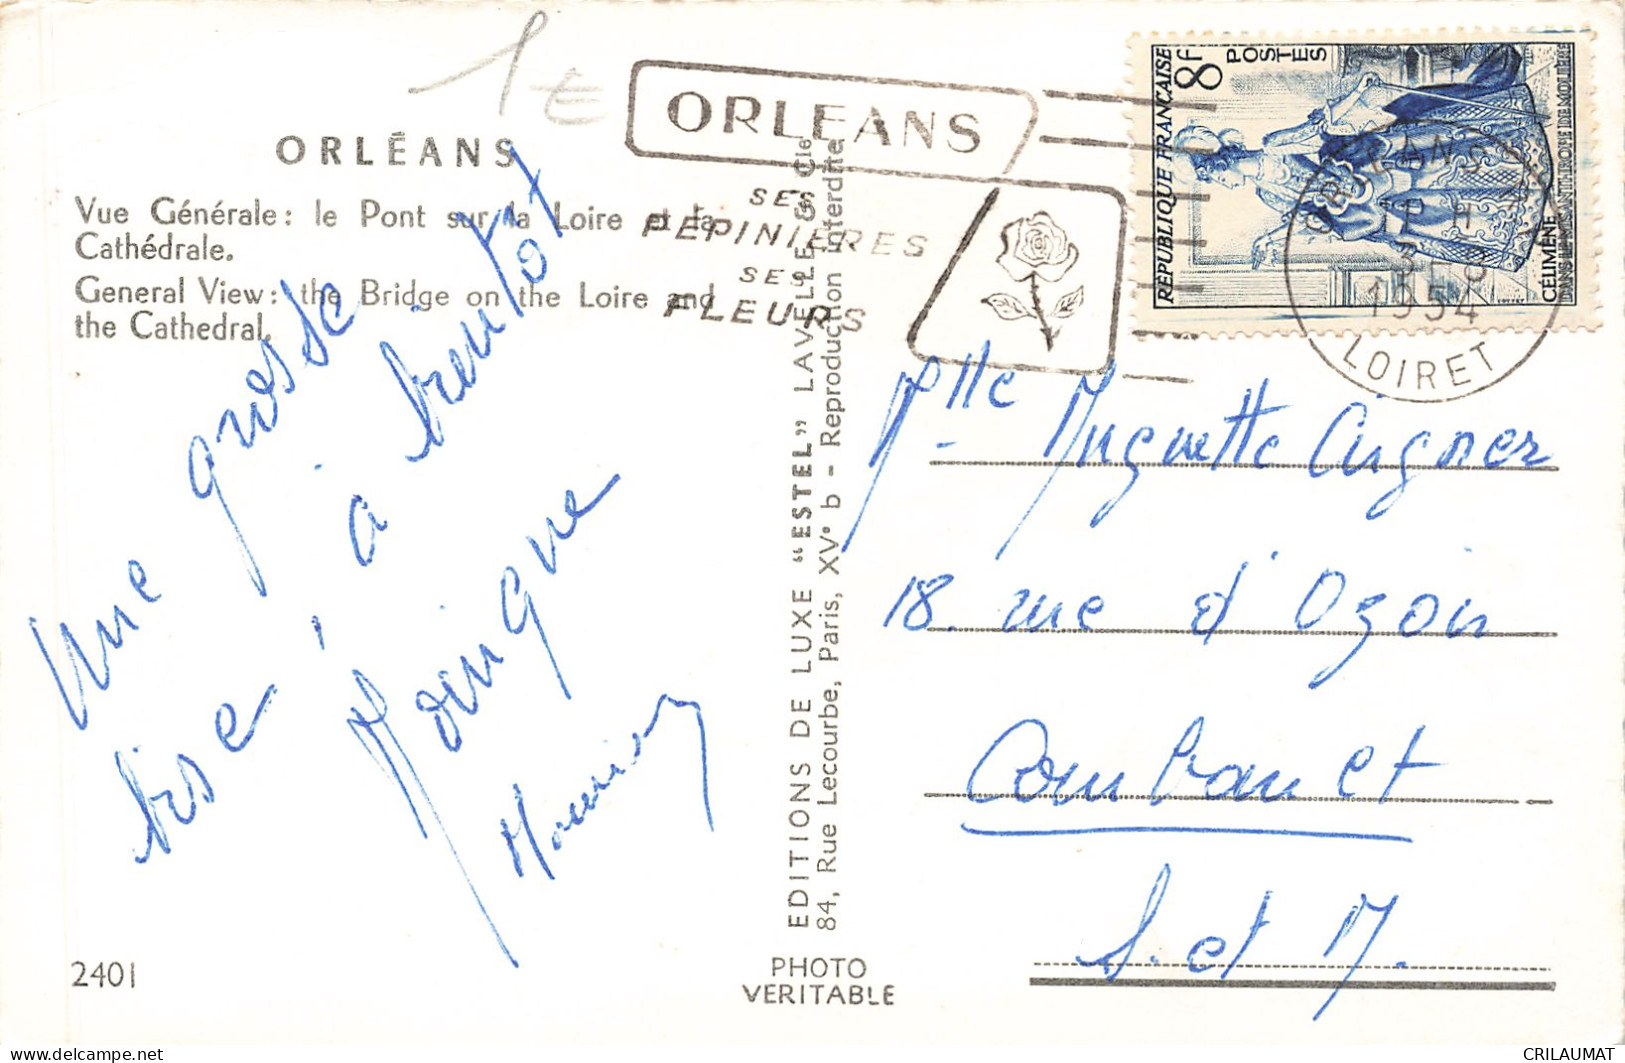 1€
ORLÉANS
Vue Générale : le Pont sur la Loire et la
Cathédrale.
General View : the Bridge on the Loire and
the Cathedral.
Une grosse
bise, à bientôt
Monique
2401
ORLEANS
SES
PEPINIERES
SES
FLEURS
EDITIONS DE LUXE "ESTEL" LAVELLE & Cie
84, Rue Lecourbe, Paris, XV° b - Reproduction Interdite
PHOTO
VERITABLE
REPUBLIQUE FRANCAISE
8F
POSTES
CÉLIMÈNE
DANS LE MISANTHROPE DE MOLIÈRE
ORLEANS
1954
LOIRET
Mlle Muguette
18. rue d'Ozoir
Combault
S. et M.
CRILAUMAT